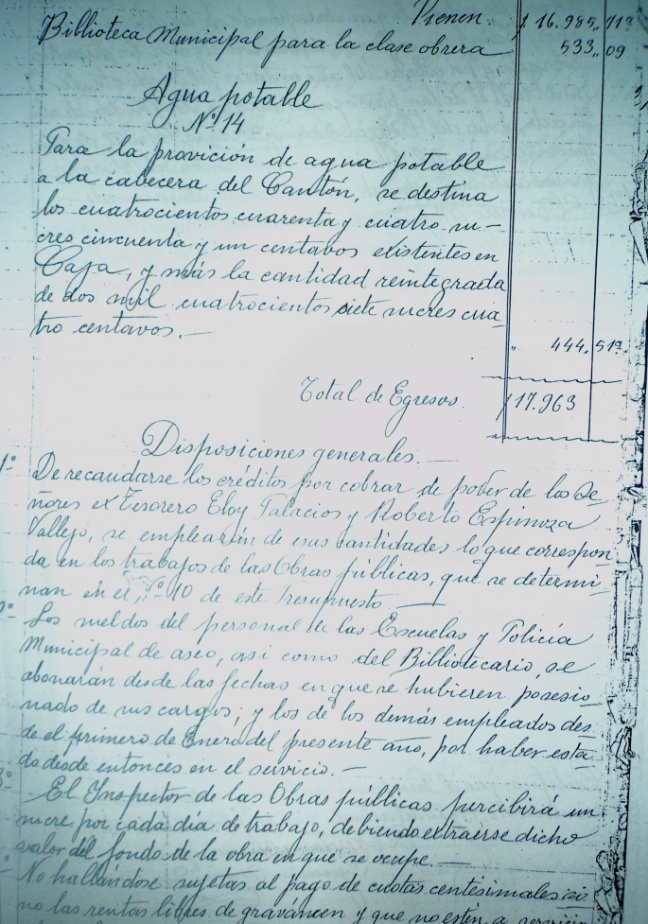 Vienen. $ 16.985,,71ª
Biblioteca Municipal para la clase obrera 533,,09
Agua potable
Nº 14
Para la provición de agua potable
a la cabecera del Cantón, se destina
los cuatrocientos cuarenta y cuatro su-
cres cincuenta y un centavos existentes en
Caja, y más la cantidad reintegrada
de dos mil cuatrocientos siete sucres cua-
tro centavos.—
" 444,51ª
Total de Egresos. $ 17.963
Disposiciones generales.—
1º De recaudarse los créditos por cobrar de poder de los Se-
ñores ex Tesorero Eloy Palacios y Roberto Espinoza
Vallejo, se emplearán de esas cantidades lo que correspon-
da en los trabajos de las Obras públicas, que se determi-
nan en el Nº 10 de este Presupuesto.—
2º Los sueldos del personal de las Escuelas y Policía
Municipal de aseo, así como del Bibliotecario, se
abonarán desde las fechas en que se hubieren posesio-
nado de sus cargos; y los de los demás empleados des-
de el primero de Enero del presente año, por haber esta-
do desde entonces en el servicio.—
3º El Inspector de las Obras públicas percibirá un
sucre por cada día de trabajo, debiendo extraerse dicho
valor del fondo de la obra en que se ocupe.—
No hallándose sujetas al pago de cuotas centésimales si-
no las rentas libres de gravamen y que no estén a servicio